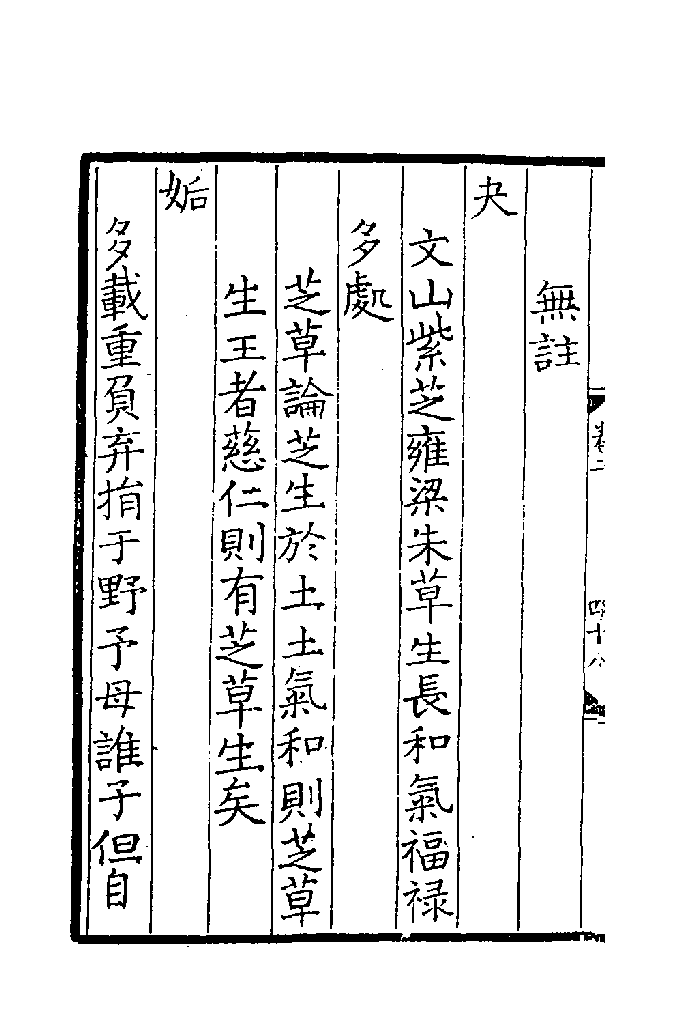 卷二
四十八
無註
夬
文山紫芝雍梁朱草生長和氣福祿
多處
芝草論芝生於土土氣和則芝草
生王者慈仁則有芝草生矣
姤
多載重負弃捐于野予母誰子但自